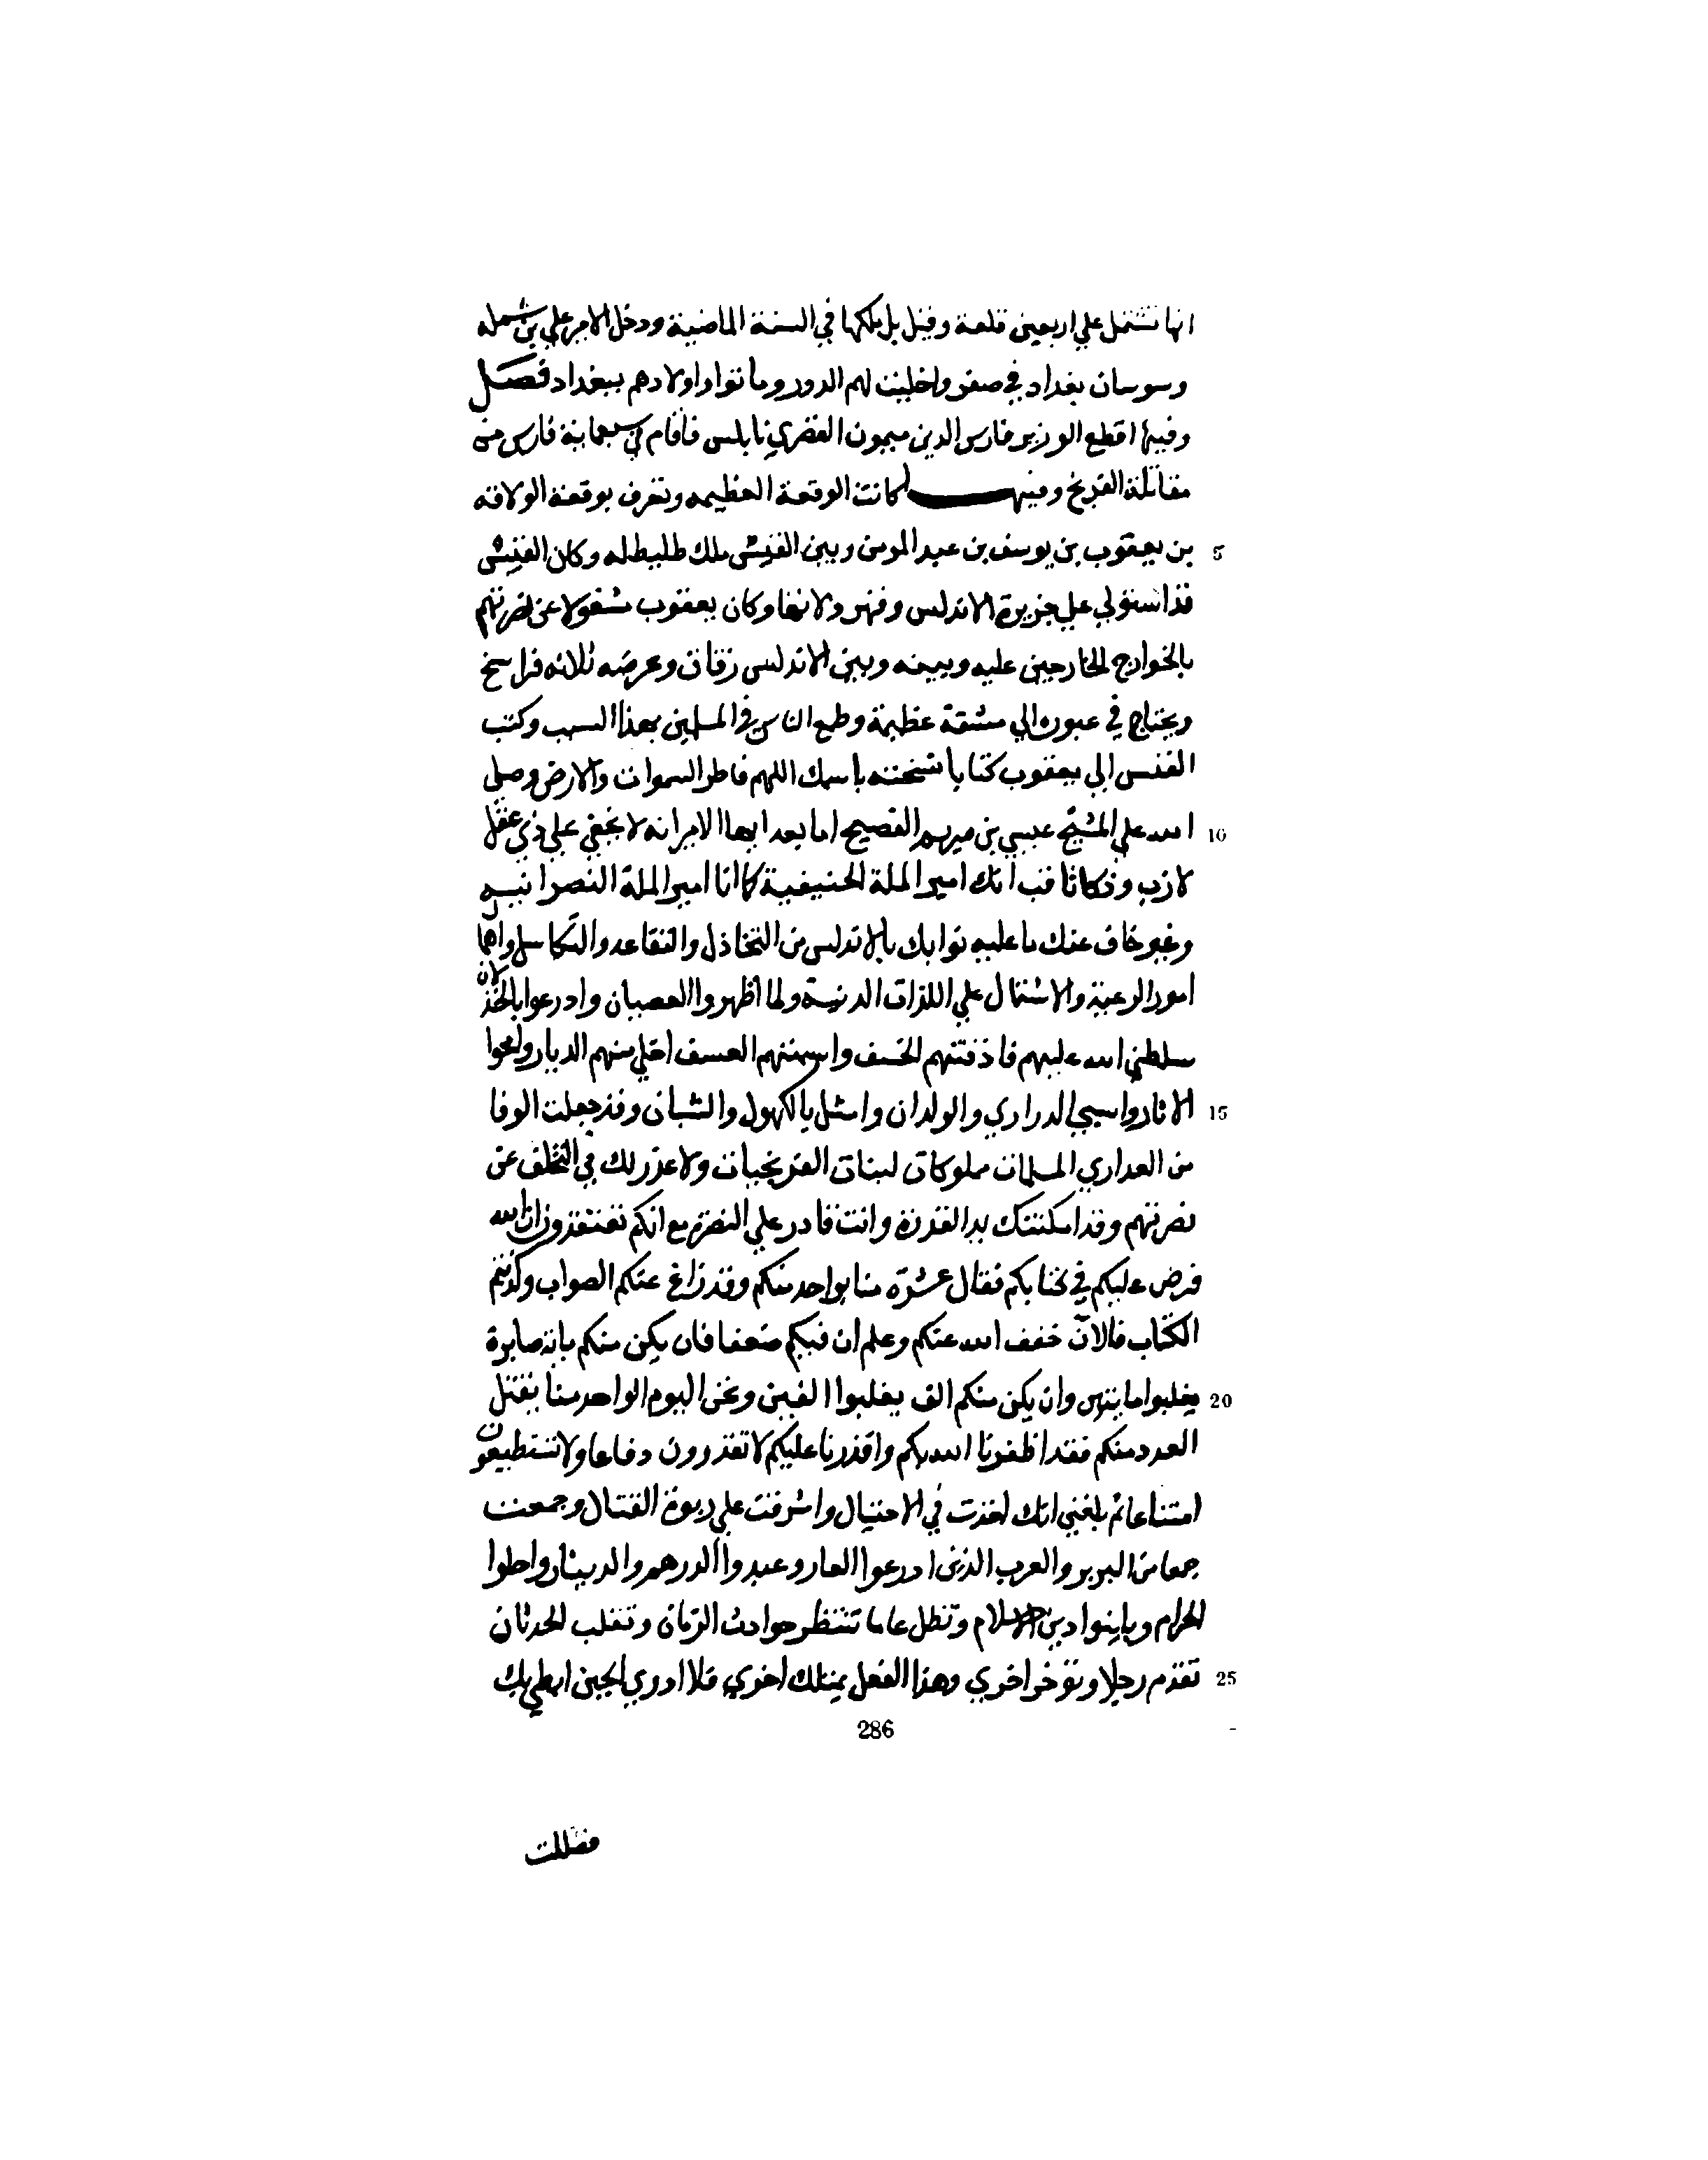 انها تشتمل علي اربعين قلعة وقيل بل ملكها في السنة الماضية ودخل الامير علي بن شمله
وسوسان بغداد في صفر واخليت لهم الدور وما توا واولادهم ببغداد فصل
وفيها اقطع الوزير فارس الدين ميمون القصري نابلس فاقام في سبعماية فارس من
مقاتلة الفرنج وفيها كانت الوقعة العظيمه وتعرف بوقعة الولاقه
5 بن يعقوب بن يوسف بن عبد المومن وبين الفنش ملك طليطله وكان الفنش
قد استولي علي جزيرة الاندلس وقهر ولاتها وكان يعقوب مشغولا عن نصرتهم
بالخوارج الخارجين عليه وبينه وبين الاندلس زقاق وعرضه ثلاثه فراسخ
ويحتاج في عبوره الي مشقة عظيمة وطمع الناس في المسلمين بهذا السبب وكتب
الفنس الي يعقوب كتابا نسخته باسمك اللهم فاطر السموات والارض وصلي
10 الله علي المسيح عيسي بن مريم الفصيح اما بعد ايها الامير انه لا يخفي علي ذي عقل
لازب وذكا ثاقب انك امير الملة الحنيفية كما انا امير الملة النصرانيه
وغير خاف عنك ما عليه نوابك بالاندلس من التخاذل والتقاعد والتكاسل واهمال
امور الرعية والاشتمال علي اللذات الدنية ولما اظهروا العصيان وادرعوا بالخذلان
سلطني الله عليهم فاذقتهم الخسف واسمتهم العسف اخلي منهم الديار وامحوا
15 الاثار واسبي الدراري والولدان وامثل بالكهول والشبان وقد جعلت الوفا
من العداري المسلمات مملوكات لبنات الفرنجيات ولا عذر لك في التخلف عن
نصرتهم وقد امكنتك يد القدرة وانت قادر علي النصرة مع انكم تعتقدون ان الله
فرض عليكم في كتابكم فقال عشرة منا بواحد منكم وقد زاغ عنكم الصواب وكذبتم
الكتاب فالان خفف الله عنكم وعلم ان فيكم ضعفا فان يكن منكم مائة صابرة
20 يغلبوا مايتين وان يكن منكم الف يغلبوا الفين ونحن اليوم الواحد منا يقتل
العدد منكم فقد اظفرنا الله بكم واقدرنا عليكم لا تقدرون دفاعا ولا تستطيعون
امتناعا ثم بلغني انك اخذت في الاحتيال واشرفت علي ربوة القتال وجمعت
جمعا من البربر والعرب الذين ادرعوا العار وعبدوا الدرهم والدينار واحلوا
الحرام وباينوا دين الاسلام وتظل عاما تنتظر حوادث الزمان وتقلب الحدثان
25 تقدم رجلا وتوخر اخري وهذا الفعل بمثلك احري فلا ادري الجبن ابطي بك
286
فضللت